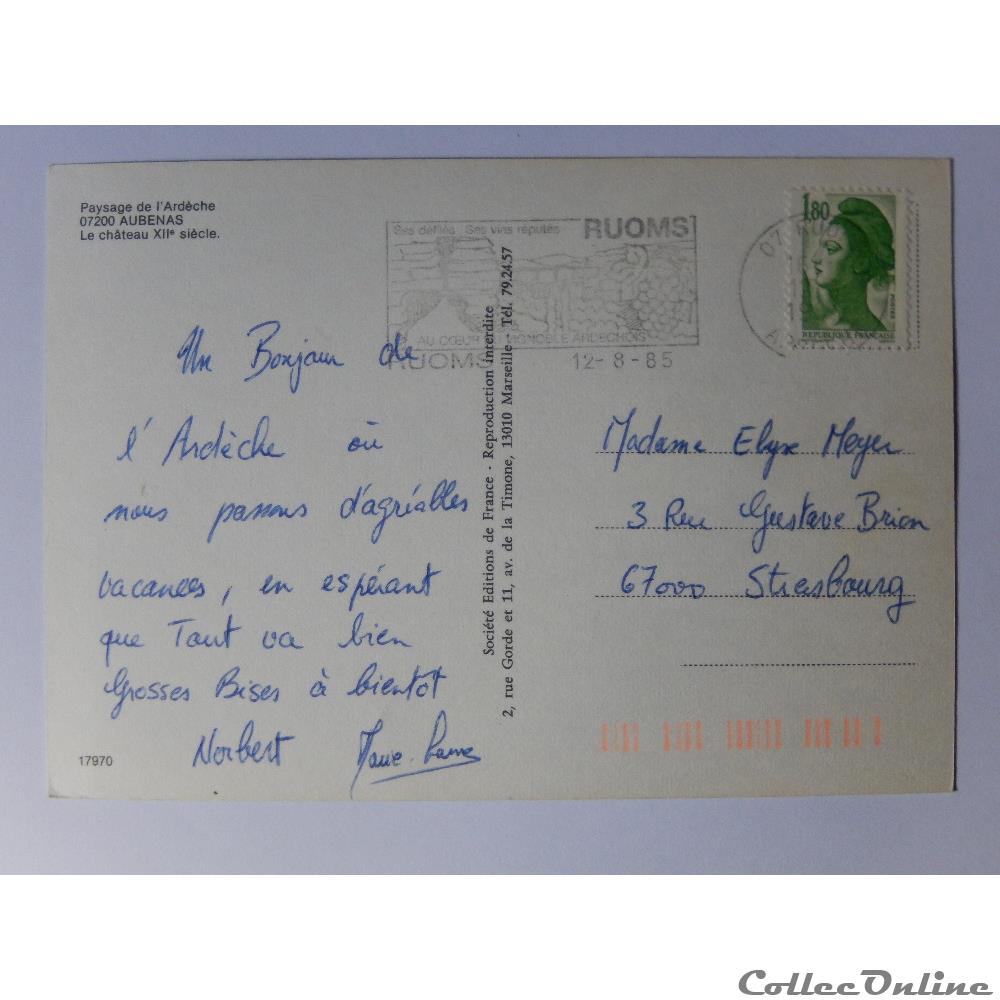 Paysage de l'Ardèche
07200 AUBENAS
Le château XIIe siècle.
Ses défilés Ses vins réputés RUOMS
AU CŒUR VIGNOBLE ARDECHOIS
RUOMS 12-8-85
07
1,80
POSTES
REPUBLIQUE FRANÇAISE
Un Bonjour de
l'Ardèche où
nous passons d'agréables
vacances, en espérant
que Tout va bien
Grosses Bises à bientôt
Norbert
17970
Société Editions de France - Reproduction interdite
2, rue Gorde et 11, av. de la Timone, 13010 Marseille Tél. 79.24.57
Madame Elyse Meyer
3 Rue Gustave Brion
67000 Strasbourg
CollecOnline